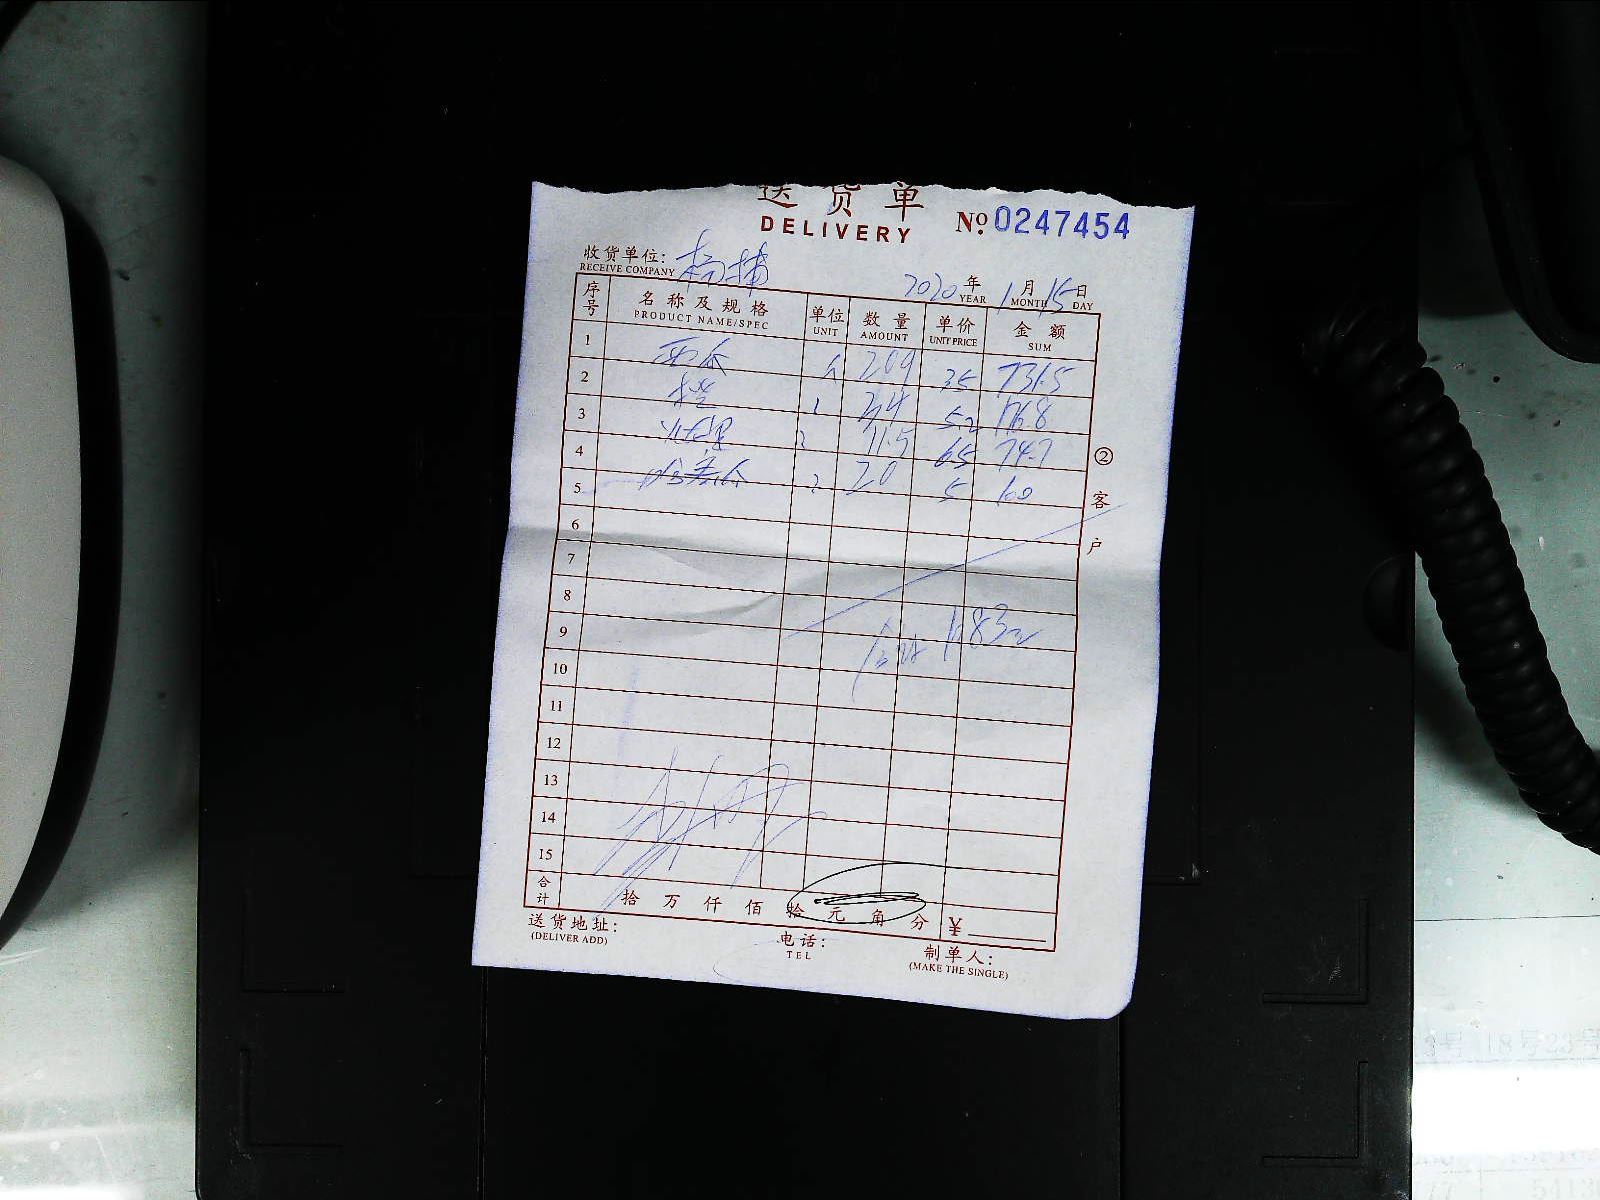 送货单
DELIVERY
No. 0247454
收货单位: 杨埔
RECEIVE COMPANY
2020年 1月 15日
YEAR MONTH DAY
序号 名称及规格 单位 数量 单价 金额
PRODUCT NAME/SPEC UNIT AMOUNT UNIT PRICE SUM
1 西瓜 209 35 731.5
2 34 5.2 176.8
3 11.5 65 74.7
4 哈美瓜 20 5 100
5
6
7
8
9 1083元
10
11
12
13
14
15
合计 拾 万 仟 佰 拾 元 角 分 ¥
送货地址: 电话: 制单人:
(DELIVER ADD) TEL (MAKE THE SINGLE)
②客户
18号23号